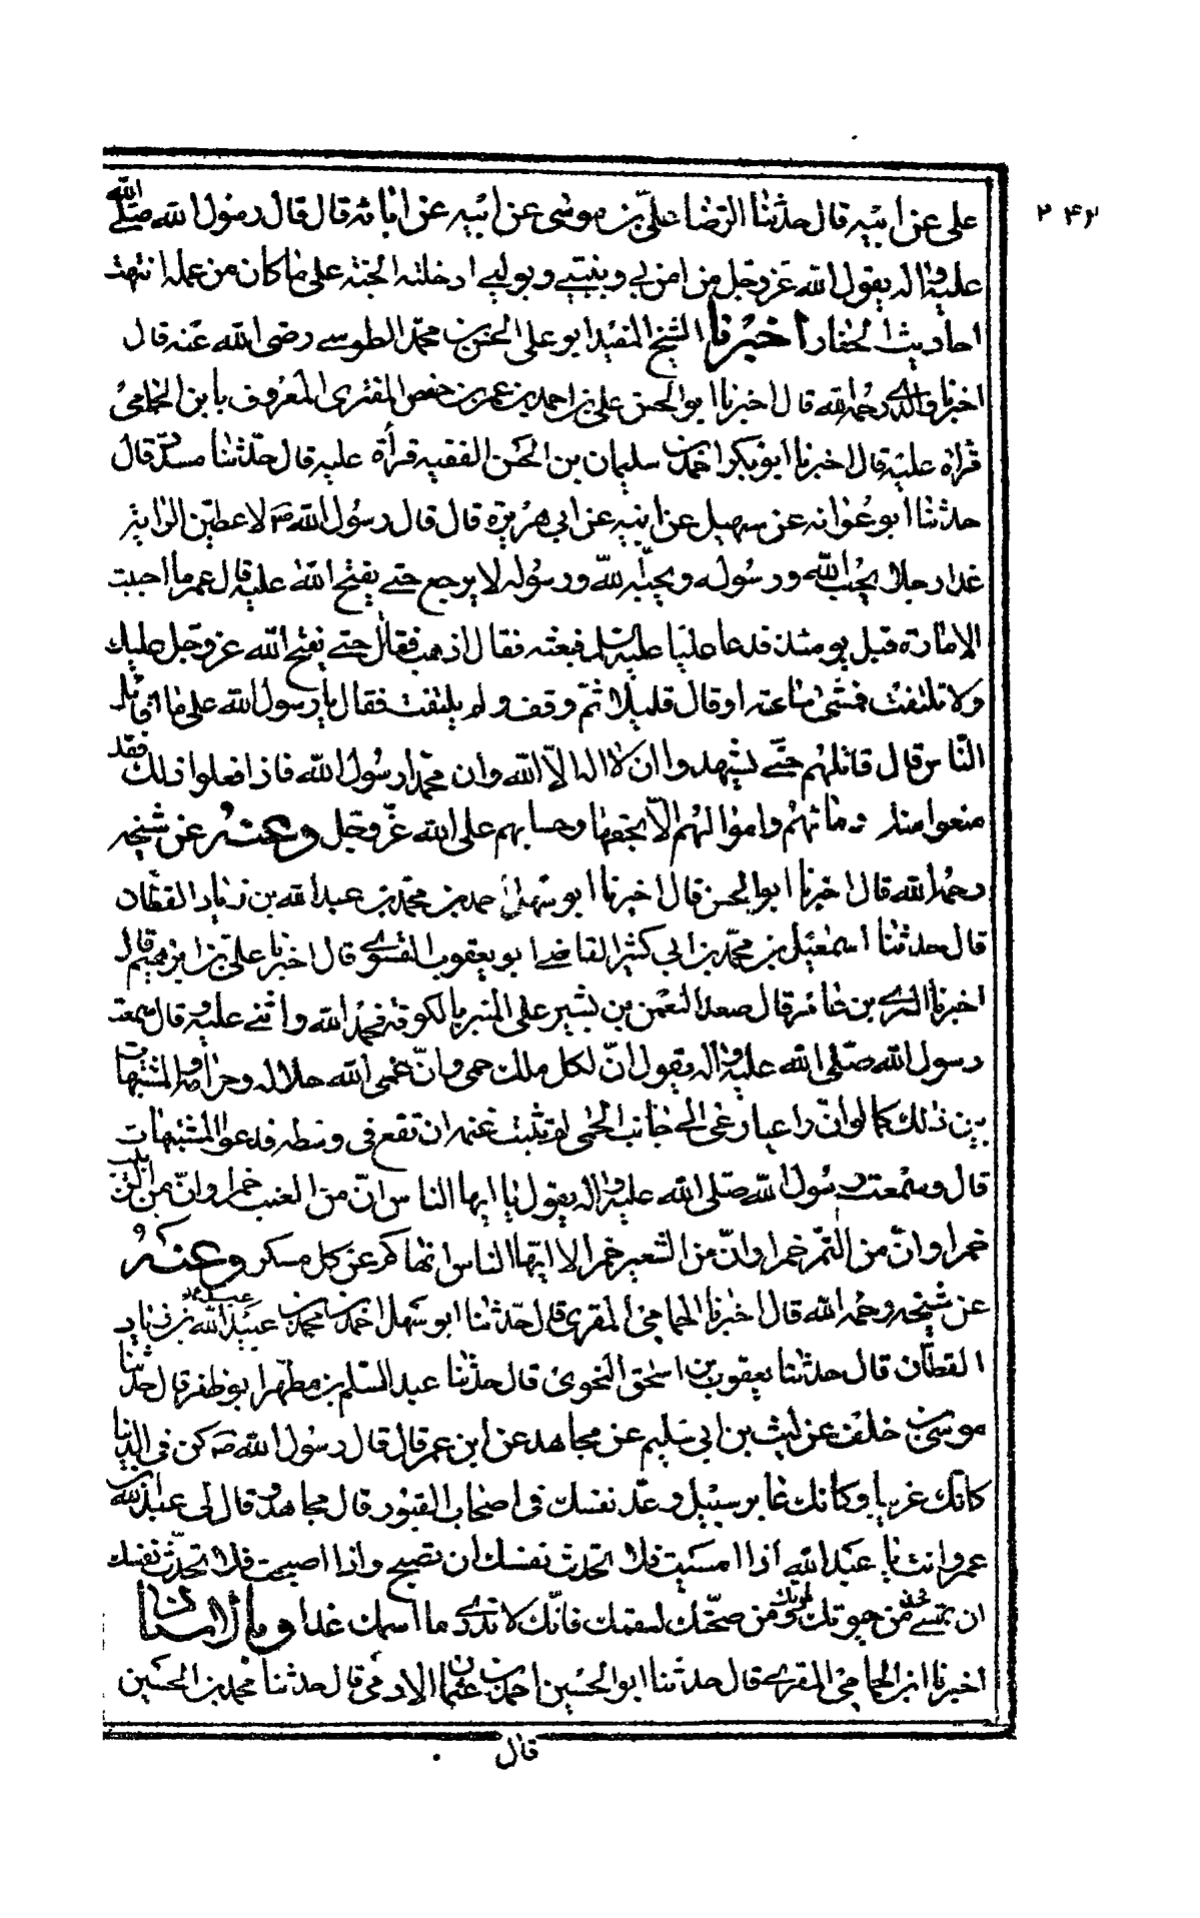 ۲۴۲
علی عن ابیه قال حدثنا الرضا علی بن موسی عن ابیه عن ابائه قال قال رسول الله صلی الله
علیه و اله یقول الله عز و جل من امن بی و بنبیی و بولیی ادخلته الجنة علی ما کان من عمله انتهت
احادیث الحفار اخبرنا الشیخ المفید ابو علی الحسن بن محمد الطوسی رضی الله عنه قال
اخبرنا والدی رحمه الله قال اخبرنا ابو الحسن علی بن احمد بن عمر بن حفص المقری المعروف بابن الحمامی
قراة علیه قال اخبرنا ابو بکر احمد بن سلیمان بن الحسن الفقیه قرأة علیه قال حدثنا مسدد قال
حدثنا ابو عوانه عن سهیل عن ابیه عن ابی هریرة قال قال رسول الله ص لاعطین الرایة
غدا رجلا یحب الله و رسوله و یحبه الله و رسوله لا یرجع حتی یفتح الله علیه قال عمر ما احببت
الامارة قبل یومئذ فدعا علیا علیه السلم فبعثه فقال اذهب فقاتل حتی یفتح الله عز و جل علیک
و لا تلتفت فمشی ساعة او قال قلیلا ثم وقف و لم یلتفت فقال یا رسول الله علی ما اقاتل
الناس قال قاتلهم حتی یشهدوا ان لا اله الا الله و ان محمدا رسول الله فاذا فعلوا ذلک فقد
منعوا منک دمائهم و اموالهم الا بحقها و حسابهم علی الله عز و جل وعنه عن شیخه
رحمه الله قال اخبرنا ابو الحسن قال اخبرنا ابو سهل احمد بن محمد بن عبد الله بن زیاد القطان
قال حدثنا اسمعیل بن محمد بن ابی کثیر القاضی ابو یعقوب الفسوی قال اخبرنا علی بن ابراهیم قال
اخبرنا السری بن عامر قال صعد النعمن بن بشیر علی المنبر بالکوفة فحمد الله و اثنی علیه و قال سمعت
رسول الله صلی الله علیه و اله یقول ان لکل ملک حمی و ان حمی الله حلاله و حرامه و المشتبهات
بین ذلک کما لو ان راعیا رعی الی جانب الحمی لم تثبت غنمه ان تقع فی وسطه فدعوا المشتبهات
قال و سمعت رسول الله صلی الله علیه و اله یقول یا ایها الناس ان من العنب خمرا و ان من الزبیب
خمرا و ان من التمر خمرا و ان من الشعیر خمرا الا ایها الناس انهاکم عن کل مسکر وعنه
عن شیخه رحمه الله قال اخبرنا الحمامی المقری قال حدثنا ابو سهل احمد بن محمد بن عبید الله بن زیاد
القطان قال حدثنا یعقوب بن اسحق النحوی قال حدثنا عبد السلم بن مطهر ابو ظفر قال حدثنا
موسی بن خلف عن لیث بن ابی سلیم عن مجاهد عن ابن عمر قال قال رسول الله ص کن فی الدنیا
کانک غریب و کانک عابر سبیل و عد نفسک فی اصحاب القبور قال مجاهد و قال لی عبد الله بن
عمر و انت یا عبد الله اذا امسیت فلا تحدث نفسک ان تصبح و اذا اصبحت فلا تحدث نفسک
ان تمسی و خذ من حیوتک لموتک و من صحتک لسقمک فانک لا تدری ما اسمک غدا وبالاسناد
اخبرنا ابن الحمامی المقری قال حدثنا ابو الحسین احمد بن عثمان الادمی قال حدثنا محمد بن الحسین
قال